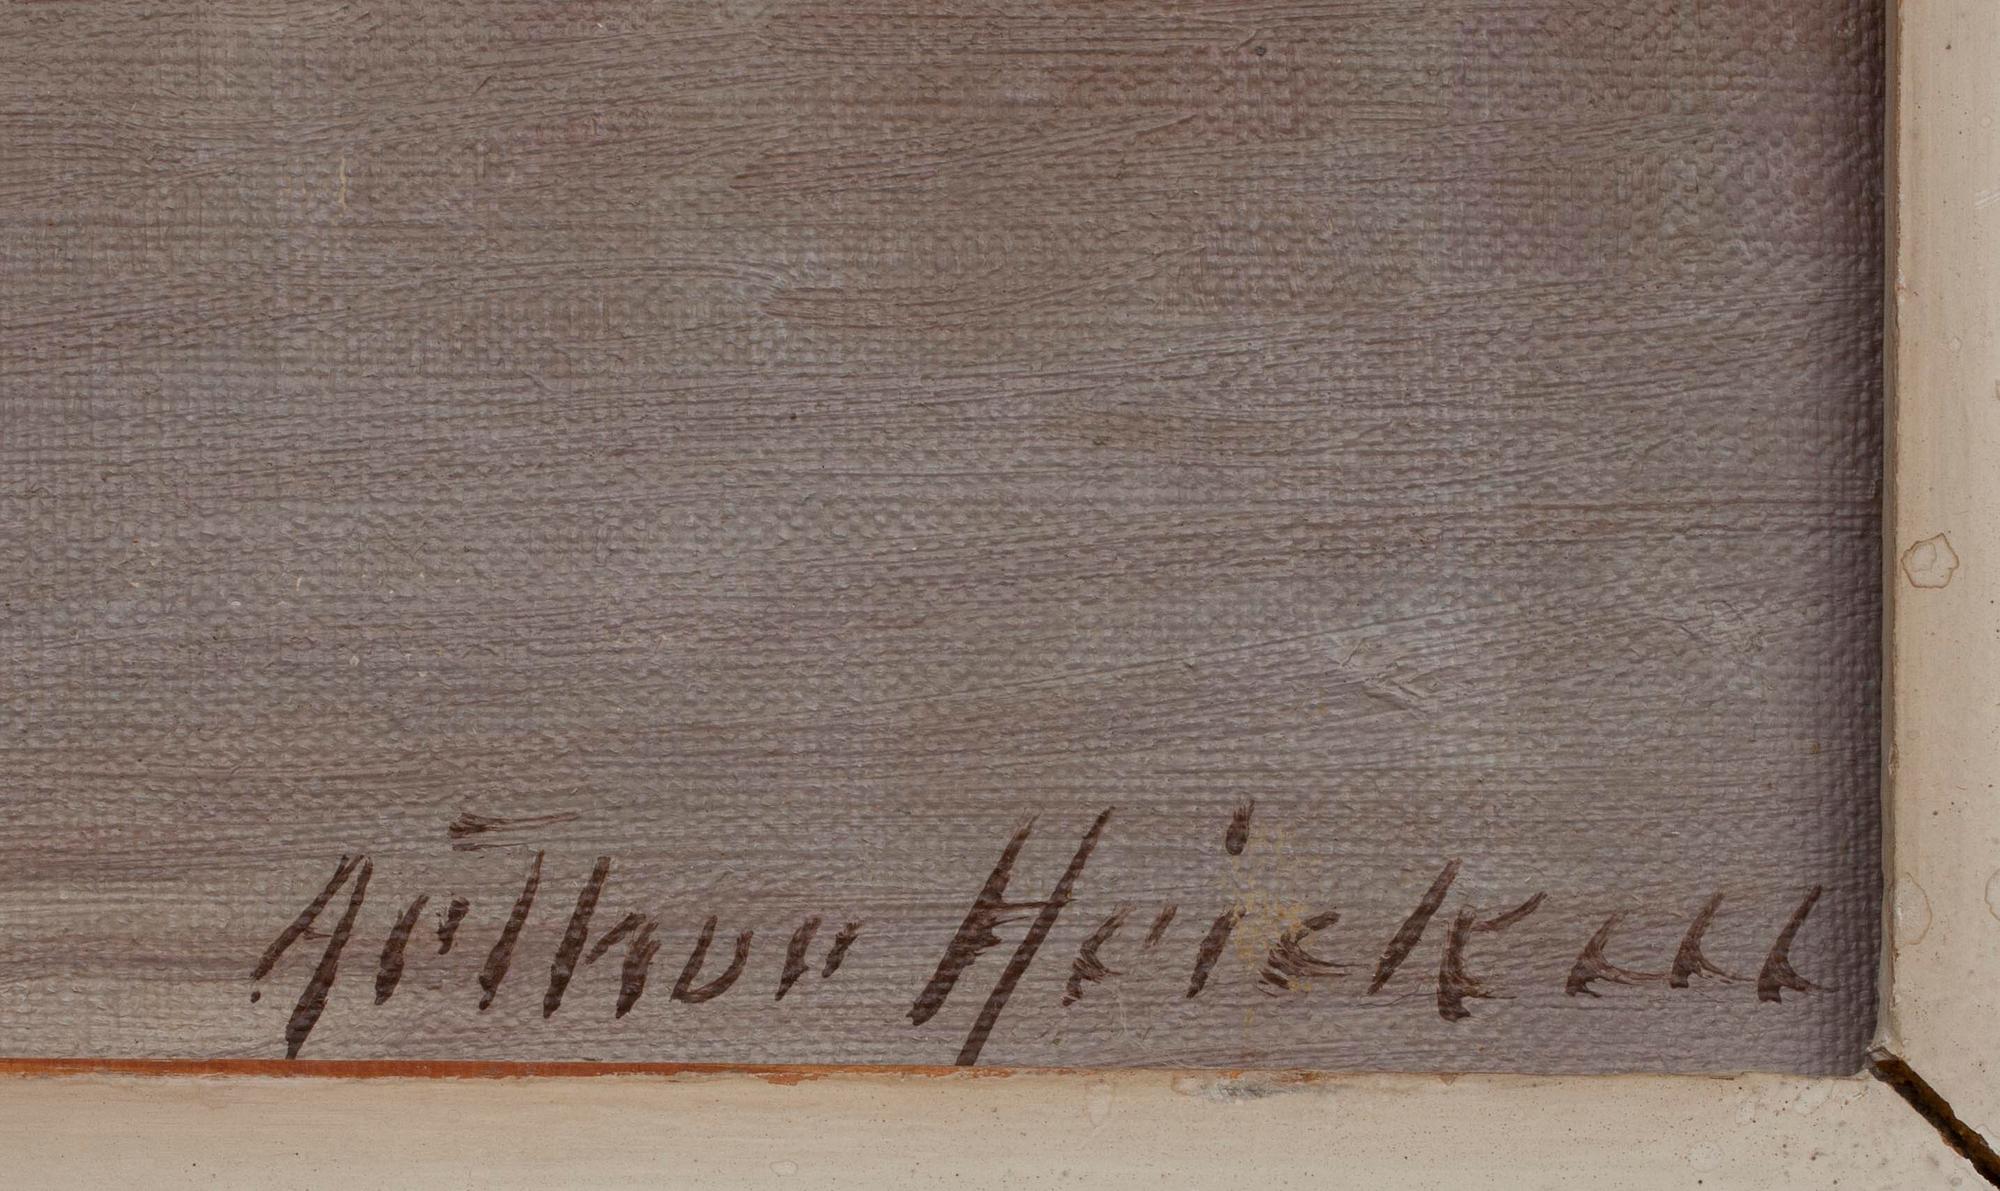 Arthur Heickell